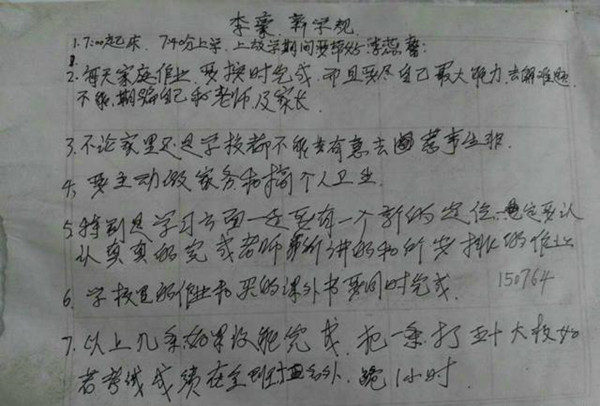 李豪 新家规
1. 7:00起床. 7:40分上学. 上放学期间要帮
2. 每天家庭作业要按时完成. 而且要尽自己最大能力去解难题
不能欺骗自己和老师及家长
3. 不论家里还是学校都不能有意去惹事生非.
4. 要主动做家务和搞个人卫生
5. 特别是学习方面一定要有一个新的定位. 一定要认
认真真的完成老师所讲的和所安排的作业
6. 学校里的作业和买的课外书要同时完成.
150764
7. 以上几条如果没能完成. 一条打五十大板如
若考试成绩在全班 名外. 跪1小时.